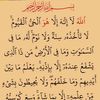 بسم الله الرحمن الرحيم
الله لا إله إلا هو الحي القيوم
لا تأخذه سنة ولا نوم له ما في
السموات وما في الأرض من ذا الذي
يشفع عنده إلا بإذنه يعلم ما بين
أيديهم وما خلفهم ولا يحيطون بشيء